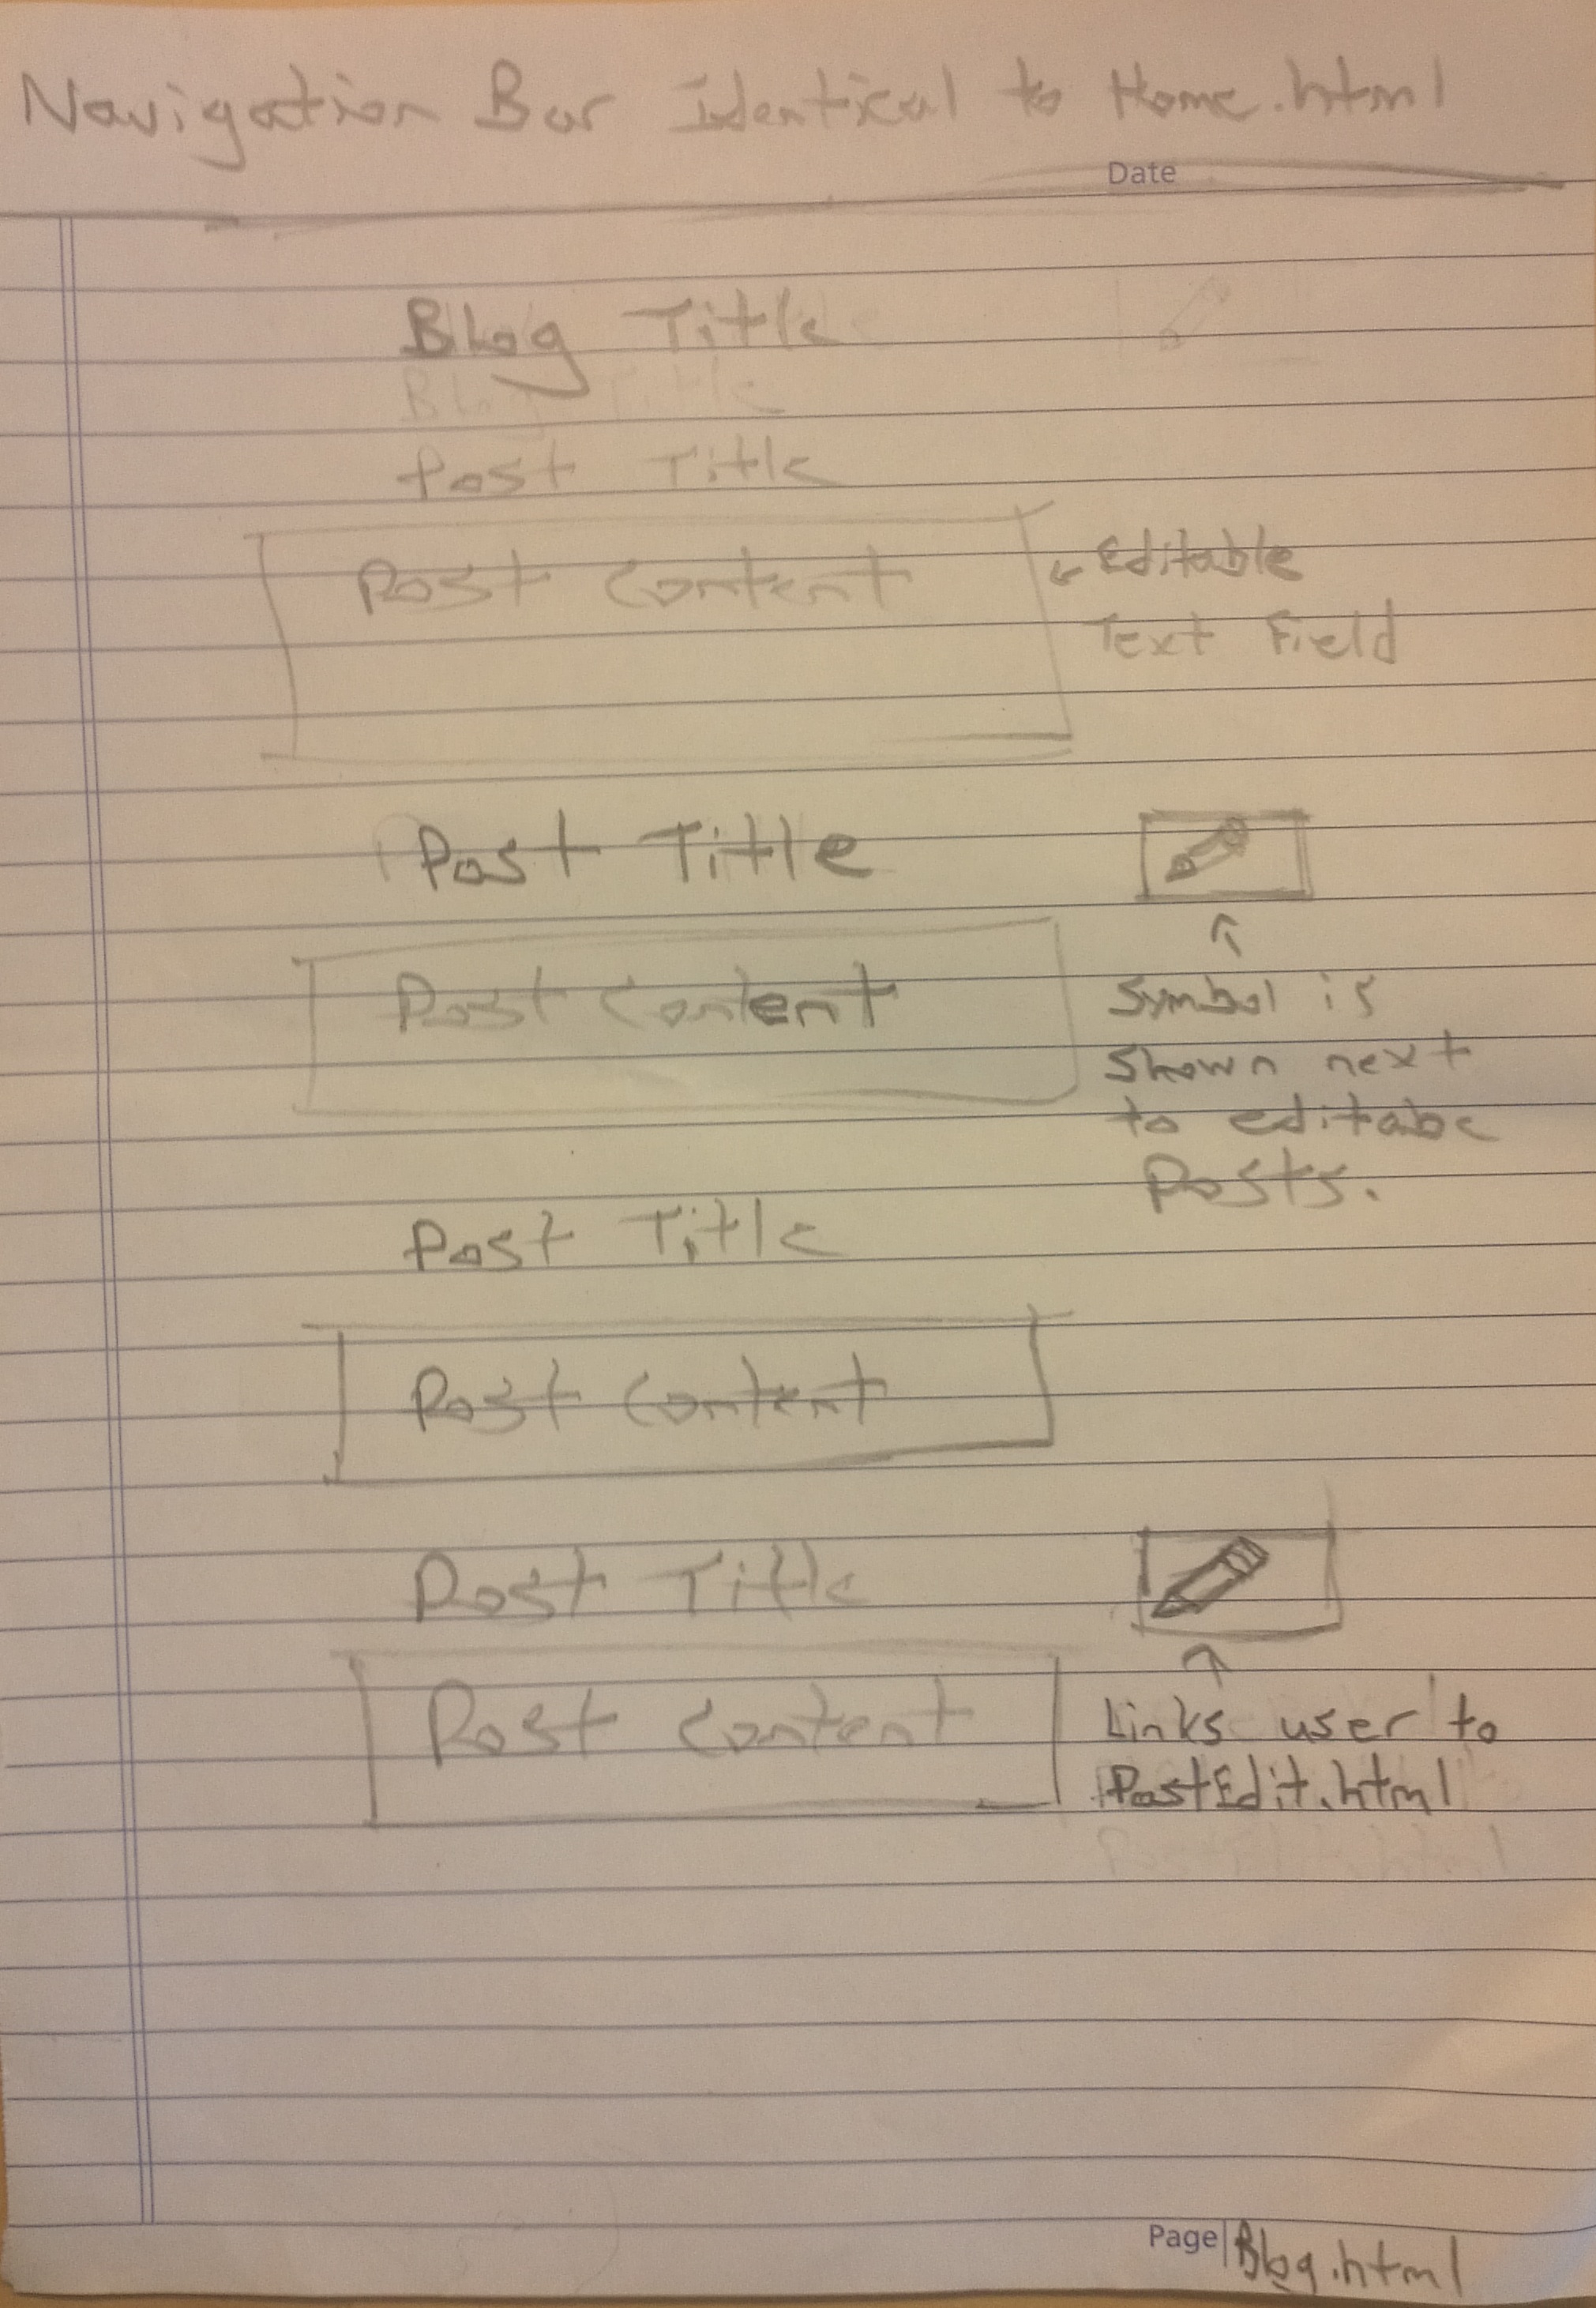 Navigation Bar Identical to Home.html
Date
Blog Title
Blog Title
Post Title
Post Content
Editable
Text Field
Post Title
Post Content
Symbol is
shown next
to editabe
Posts.
Post Title
Post Content
Post Title
Post Content
Links user to
PostEdit.html
Page Blog.html